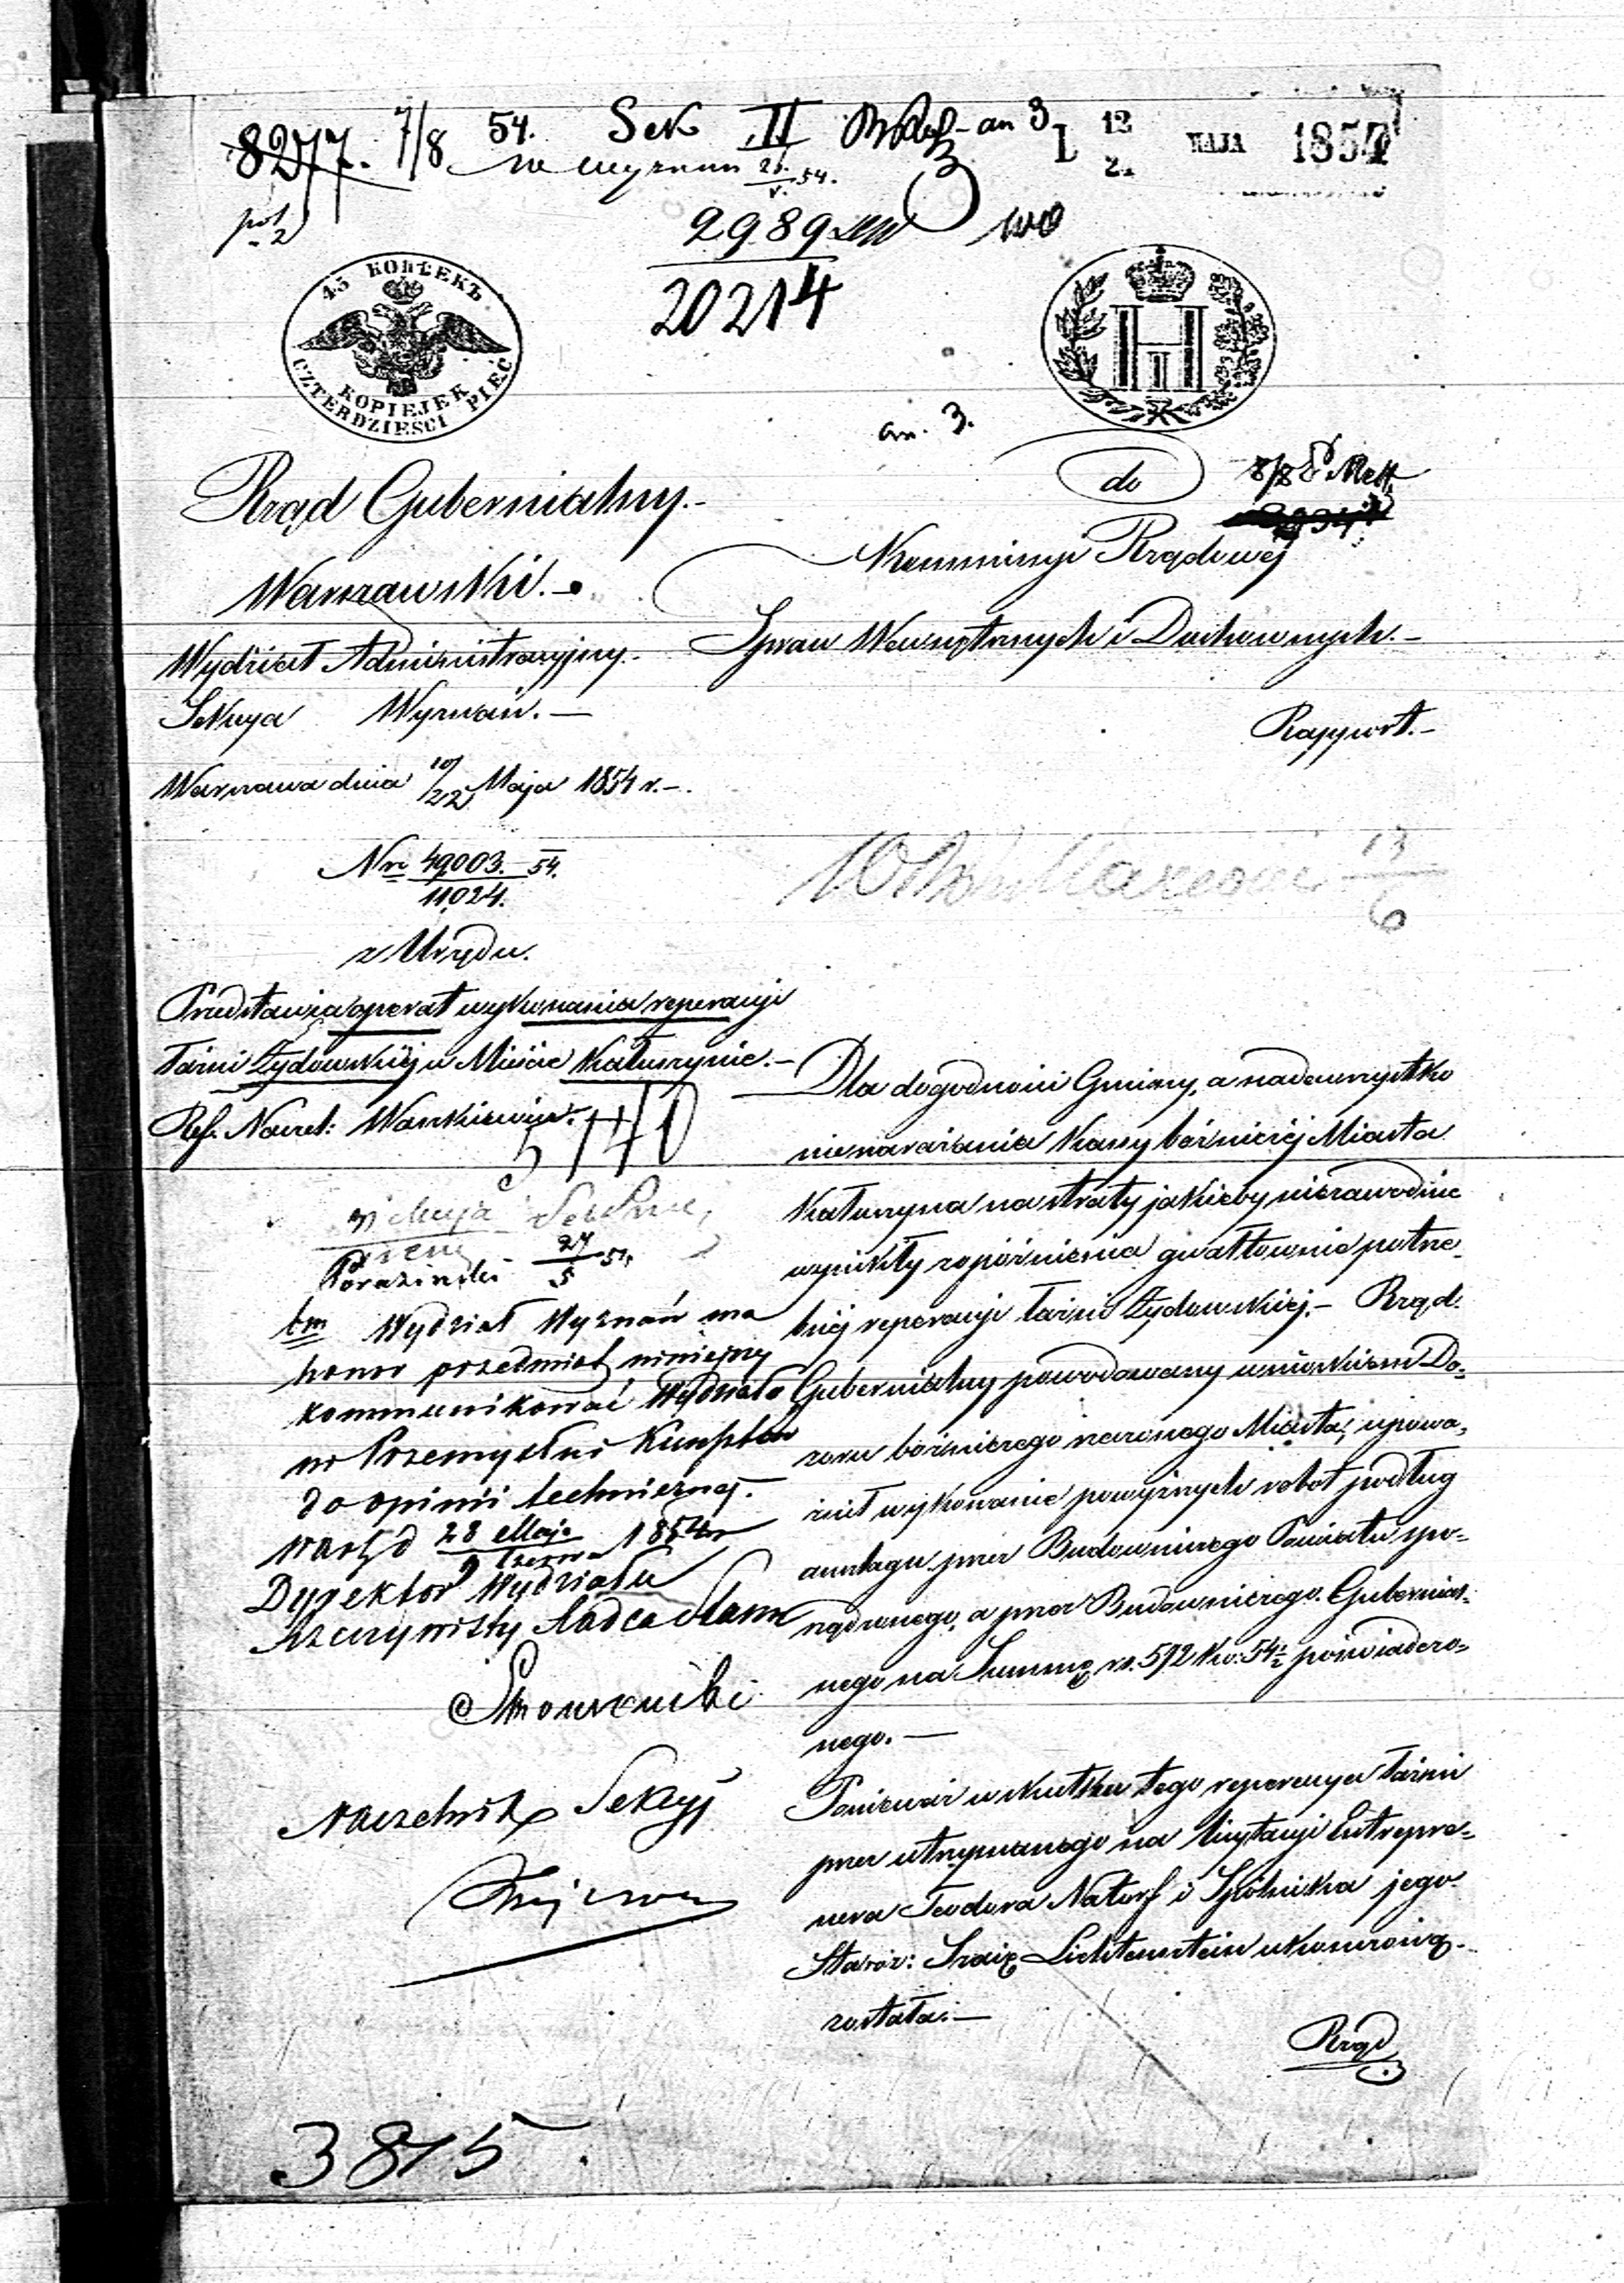 8277. 7/8 54. Sek II an 3 L 12 MAJA 1854
24
w wyznan 25/V. 54.
pol 2
2989
20214
45 КОПѢЕКЪ
KOPIEJEK
CZTERDZIEŚCI PIĘĆ
H I
an. 3.
do
Rząd Gubernialny.-
Warszawski.-
Wydział Administracyjny.-
Sekcya Wyznań.-
Warszawa dnia 10/22 Maja 1854 r.-
Nro 49003./11,024. 54.
z Urzędu.
Przedstawia operat wykonania reperacyi
łaźni Żydowskiej w Mieście Kałuszynie.-
Ref. Naczel: Wankiewicz.
5740
Kommissyi Rządowej
Spraw Wewnętrznych i Duchownych.-
Rapport.-
13/6
Dla dogodności Gminy, a nadewszystko
nienarażania Kassy bóżniczej Miasta
Kałuszyna na straty jakieby niezawodnie
wynikły z opóźnienia gwałtownie potrze-
bnej reperacyi łaźni Żydowskiej.- Rząd
Gubernialny powodowany wnioskiem Do-
zoru bóżniczego rzeczonego Miasta, upowa-
żnił wykonanie powyższych robot podług
anszlagu przez Budowniczego Powiatu spo-
rządzonego, a przez Budowniczego Gubernial-
nego na Summę rs. 592 kop: 54½ poświadczo-
nego.-
Ponieważ w skutku tego reperacya łaźni
przez utrzymanego na licytacyi Entrepre-
nera Teodora Natorf i Spólnika jego
Staroz: Szaię Lichtenstein ukończoną
została.-
Rząd
Sekcya
27/5 54.
bm Wydział Wyznań ma
honor przedmiot niniejszy
kommunikować Wydziało
wi Przemysłu i Kunsztów
do opinii technicznej.
w Warsz d 28 Maja/9 Czerwca 1854 r
Dyrektor Wydziału
Rzeczywisty Radca Stanu
Naczelnik Sekcyi
3815